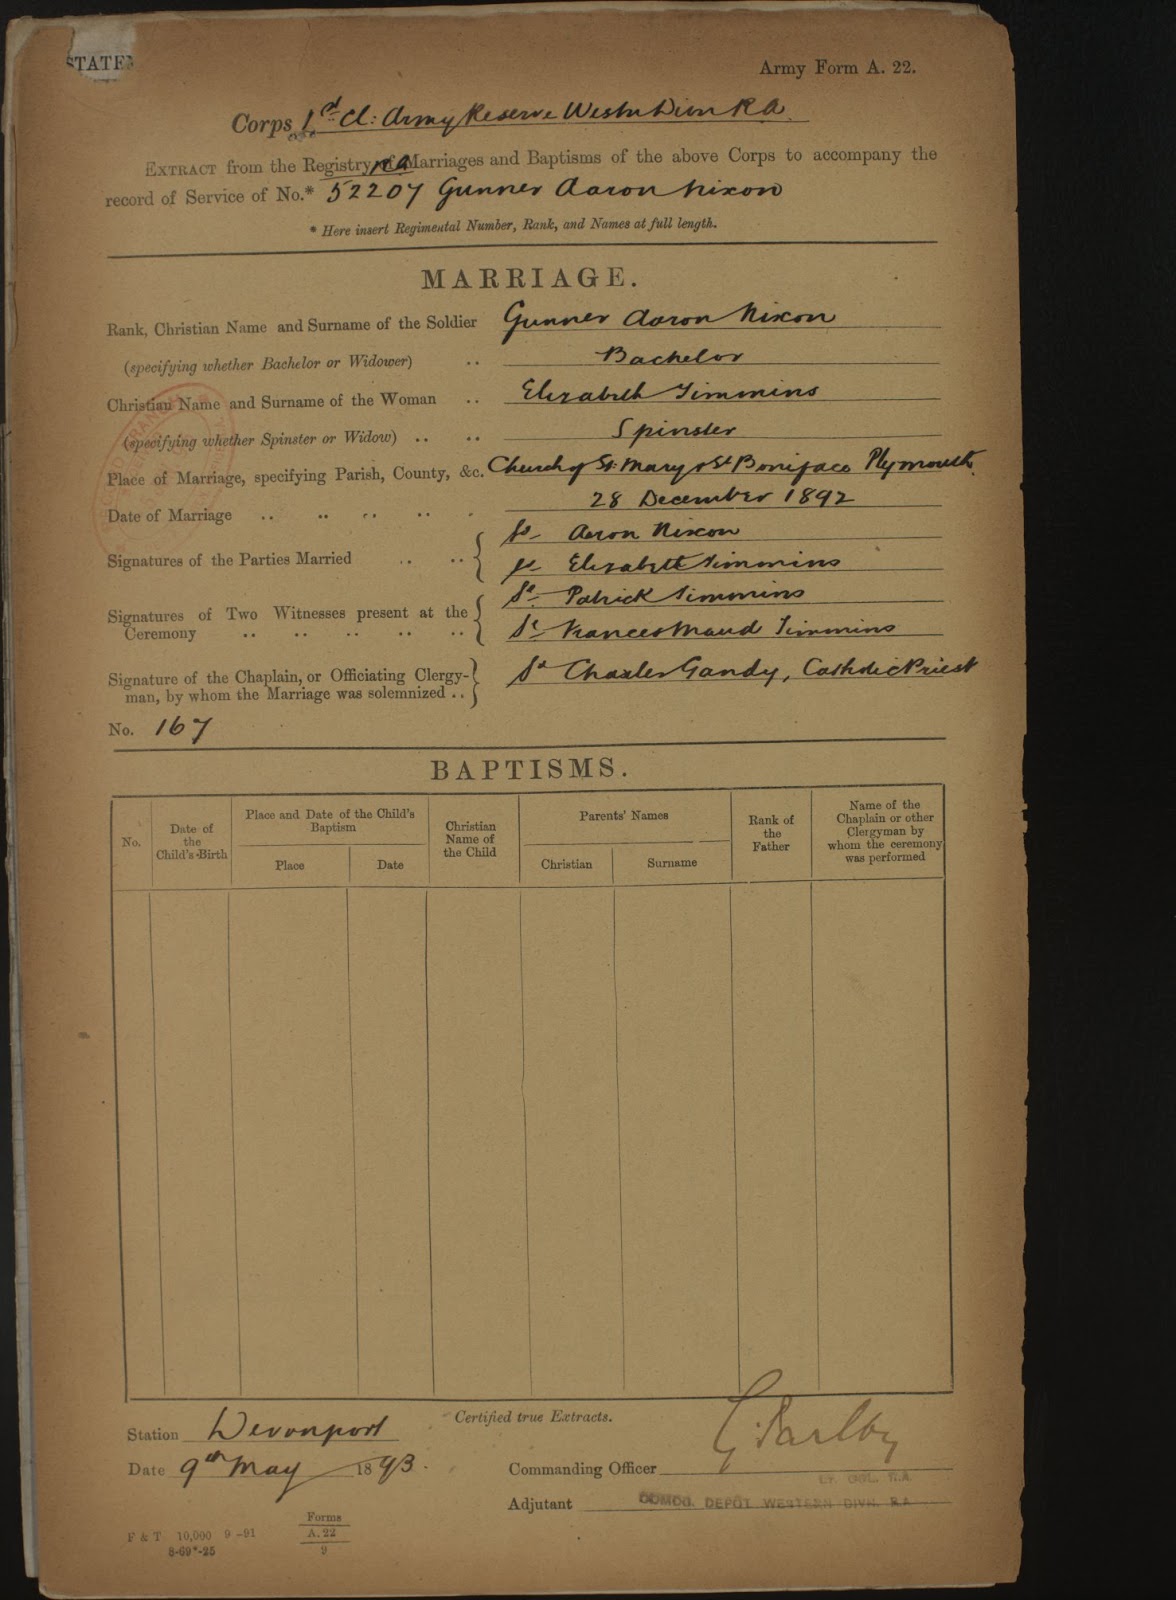 STATEM
Army Form A. 22.
Corps 1st Cl: Army Reserve Westn Divn R.A.
EXTRACT from the Registry of Marriages and Baptisms of the above Corps to accompany the
record of Service of No.* 52207 Gunner Aaron Nixon
* Here insert Regimental Number, Rank, and Names at full length.
MARRIAGE.
Rank, Christian Name and Surname of the Soldier Gunner Aaron Nixon
(specifying whether Bachelor or Widower) .. Bachelor
Christian Name and Surname of the Woman .. Elizabeth Timmins
(specifying whether Spinster or Widow) .. .. Spinster
Place of Marriage, specifying Parish, County, &c. Church of St: Mary & St Boniface Plymouth.
Date of Marriage .. .. .. .. . 28 December 1892
Signatures of the Parties Married .. .. Aaron Nixon
Elizabeth Timmins
Signatures of Two Witnesses present at the Patrick Timmins
Ceremony .. .. .. .. .. Frances Maud Timmins
Signature of the Chaplain, or Officiating Clergy- Charles Gandy, Catholic Priest
man, by whom the Marriage was solemnized ..
No. 167
BAPTISMS.
No.
Date of
the
Child's Birth
Place and Date of the Child's
Baptism
Place
Date
Christian
Name of
the Child
Parents' Names
Christian
Surname
Rank of
the
Father
Name of the
Chaplain or other
Clergyman by
whom the ceremony
was performed
Certified true Extracts.
Station Devonport
Date 9th May 1893.
Commanding Officer
LT. COL. R.A.
Adjutant COMDG. DEPÔT WESTERN DIVN. R.A.
F & T 10,000 9-91
8-69*-25
Forms
A. 22
9